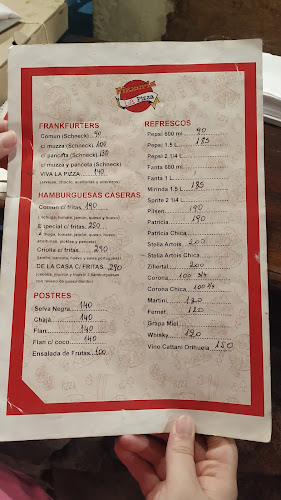 Pizzería
LA Pizza
FRANKFURTERS
Comun (Schneck) 90
c/ muzza (Schneck) 100
c/ panceta (Schneck) 130
c/ muzza y panceta (Schneck)
VIVA LA PIZZA 140
HAMBURGUESAS CASERAS
Comun c/ fritas 190
( lechuga, tomate, jamón, queso y huevo)
Especial c/ fritas 250
DE LA CASA C/ FRITAS 290
Criolla c/ fritas 290
POSTRES
Selva Negra 140
Chajá 140
Flan 140
Flan c/ coco 140
Ensalada de Frutas 100
REFRESCOS
Pepsi 600 ml 90
Pepsi 1.5 L 185
Pepsi 2 1/4 L
Fanta 600 ml
Fanta 1 L
Mirinda 1.5 L 185
Sprite 2 1/4 L
Pilsen 190
Patricia 190
Patricia Chica
Stella Artois 200
Stella Artois Chica
Zillertal 200
Corona 100 3/4
Corona Chica 100
Martini 120
Fernet 120
Grapa Miel
Whisky 120
Vino Cattani Orihuela 150